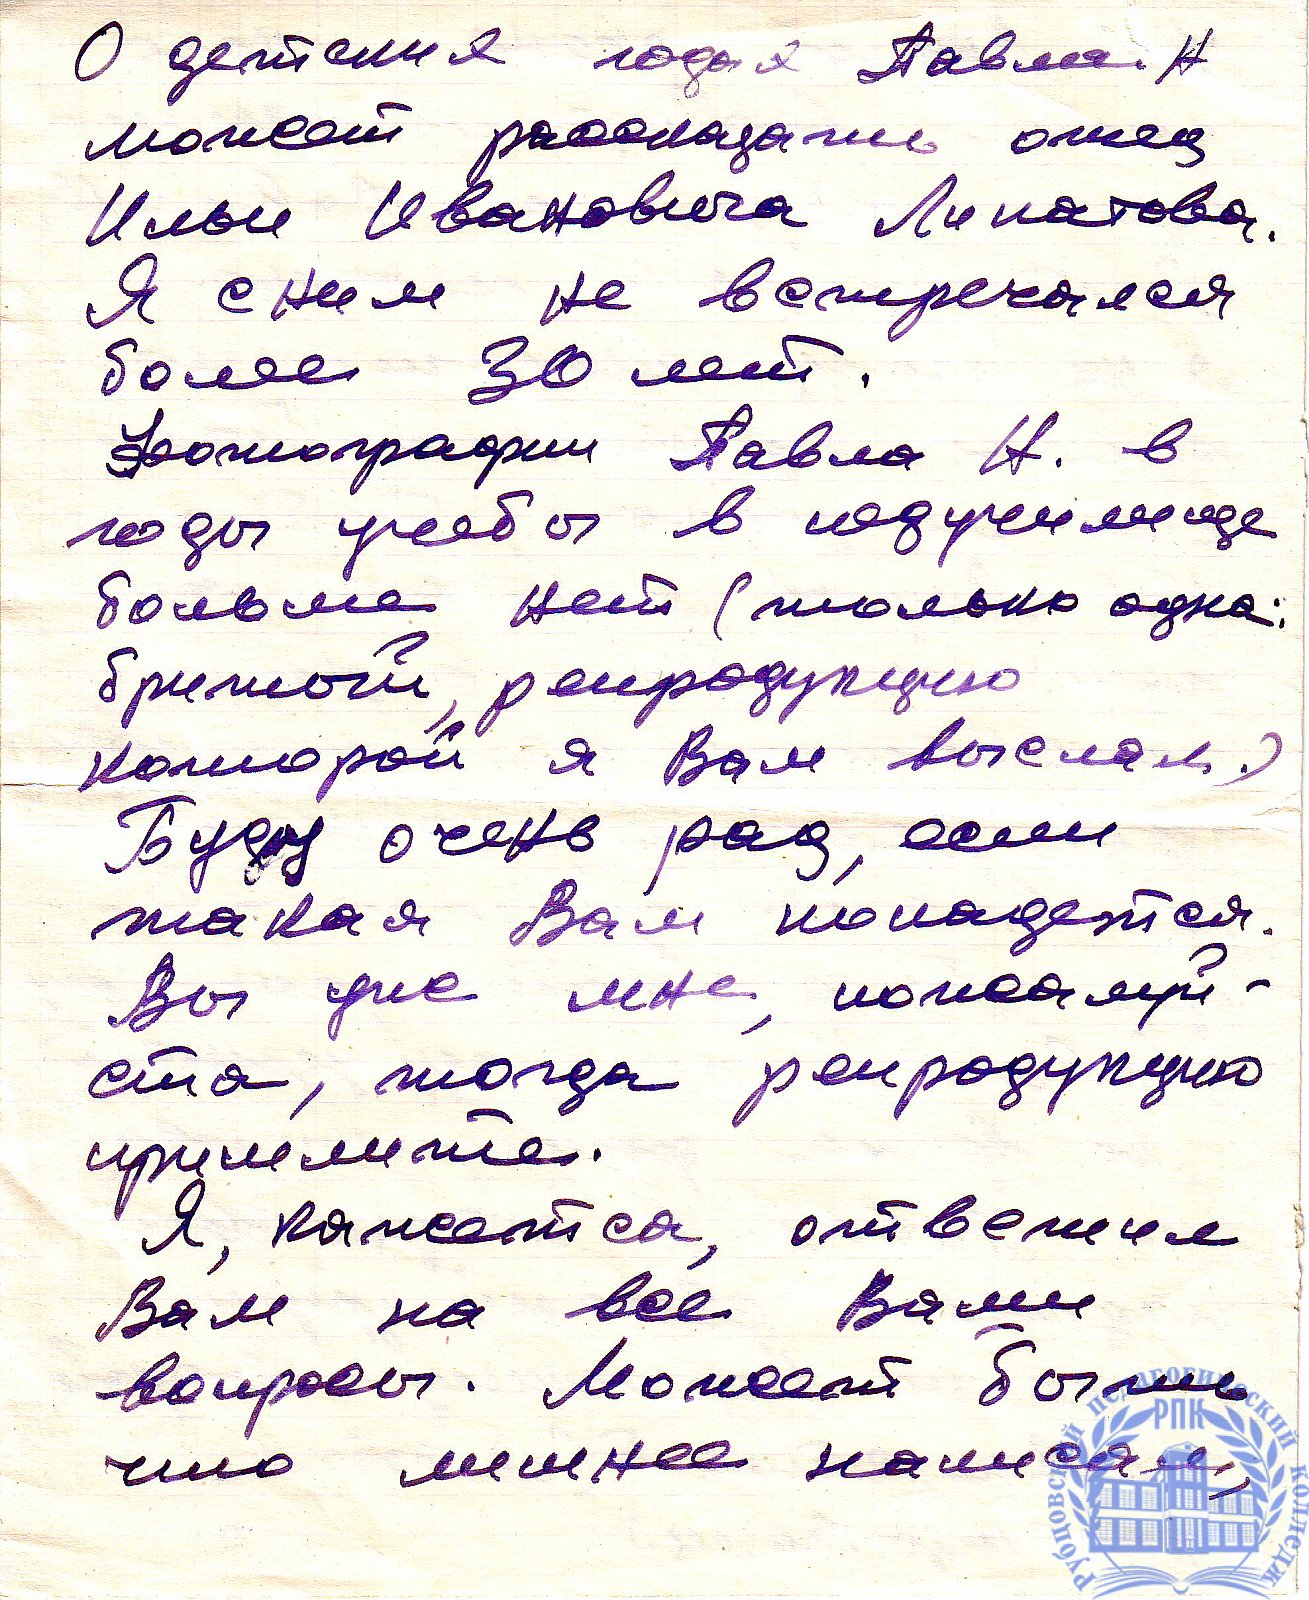 О детских годах Павла Н
может рассказать отец
Ильи Ивановича Липатова.
Я с ним не встречался
более 30 лет.
Фотографии Павла Н. в
годы учебы в педучилище
больше нет (только одна:
бритый, репродукцию
которой я Вам выслал.)
Буду очень рад, если
такая Вам попадется.
Вы уже мне, пожалуй-
ста, тогда репродукцию
пришлите.
Я, кажется, ответил
Вам на все Ваши
вопросы. Может быть
что лишнее написал,
Рубцовский педагогический колледж
РПК